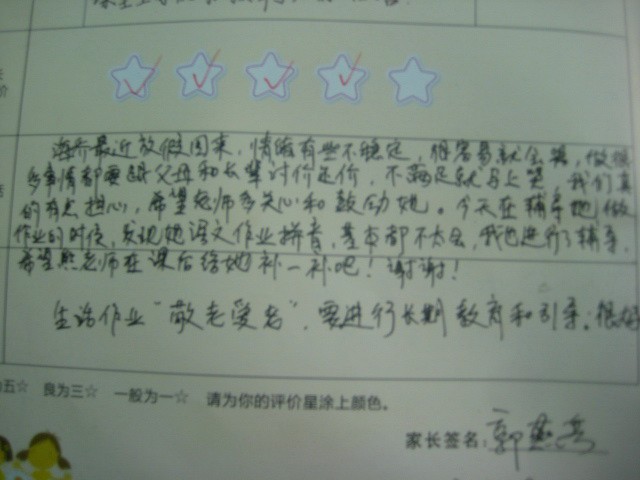 最近放假回来，情绪有些不稳定，很容易就会哭，做很
多事情都要跟父母和长辈讨价还价，不满足就马上哭，我们真
的有点担心，希望老师多关心和鼓励她。今天在辅导她做
作业的时候，发现她语文作业拼音，基本都不太会，我也进行了辅导，
希望熊老师在课后给她补一补吧！谢谢！
生活作业“敬老爱老”，要进行长期教育和引导，很好
为五☆ 良为三☆ 一般为一☆ 请为你的评价星涂上颜色。
家长签名：郭燕芳